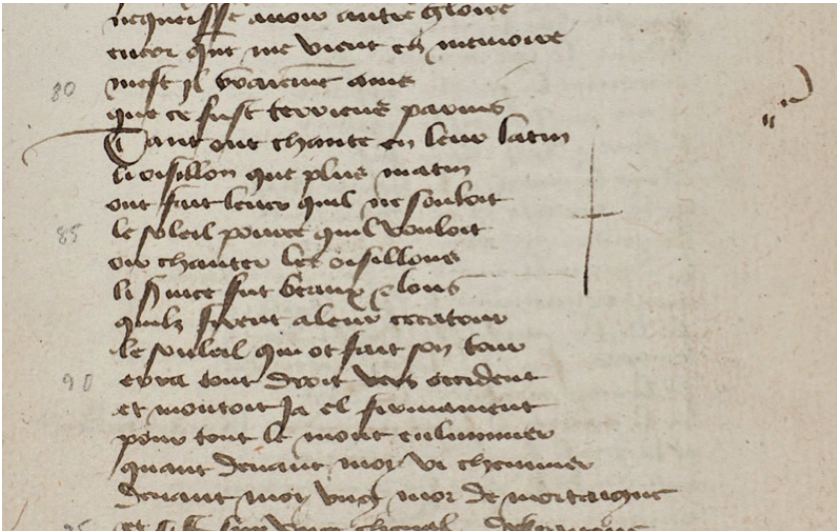 nequeisse avoir autre gloire
encor que me vient en memoire
80 mest il vraiement avis
que ce fust terriens paravis
Tant ont chante en leur latin
li oisillon que plus matin
ont fait lever quil ne souloit
85 le soleil pource quil vouloit
oir chanter les oisillons
li service fut beaux & lons
quilz firent a leur creatour
le souleil qui ot fait son tour
90 erra tout droit vers occident
et montoit ja el firmament
pour tout le mont enluminer
quant devant moy vi cheminer
devant moy ung mor de mortaigne